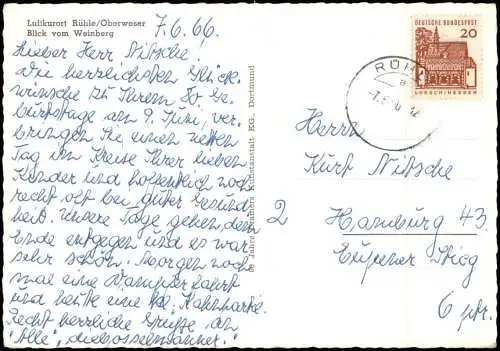 Luftkurort Rühle/Oberweser
Blick vom Weinberg
7.6.66.
Lieber Herr Nitsche!
Die herrlichsten Glück-
wünsche zu Ihrem Ge-
burtstage am 9. Juni, ver-
bringen Sie einen netten
Tag im Kreise Ihrer lieben
Kinder und hoffentlich noch
recht oft bei guter Gesund-
heit. Unsere Tage gehen dem
Ende entgegen und es war
sehr schön. Morgen noch
mal eine Dampferfahrt
und heute eine Kahnpartie.
Recht herzliche Grüße, an
"Alle",
Jahre Kunstanstalt KG., Dortmund
DEUTSCHE BUNDESPOST
20
LORSCH/HESSEN
RÜH
Herrn
Kurt Nitsche
2 Hamburg 43.
Eupener Stieg
6 ptr.